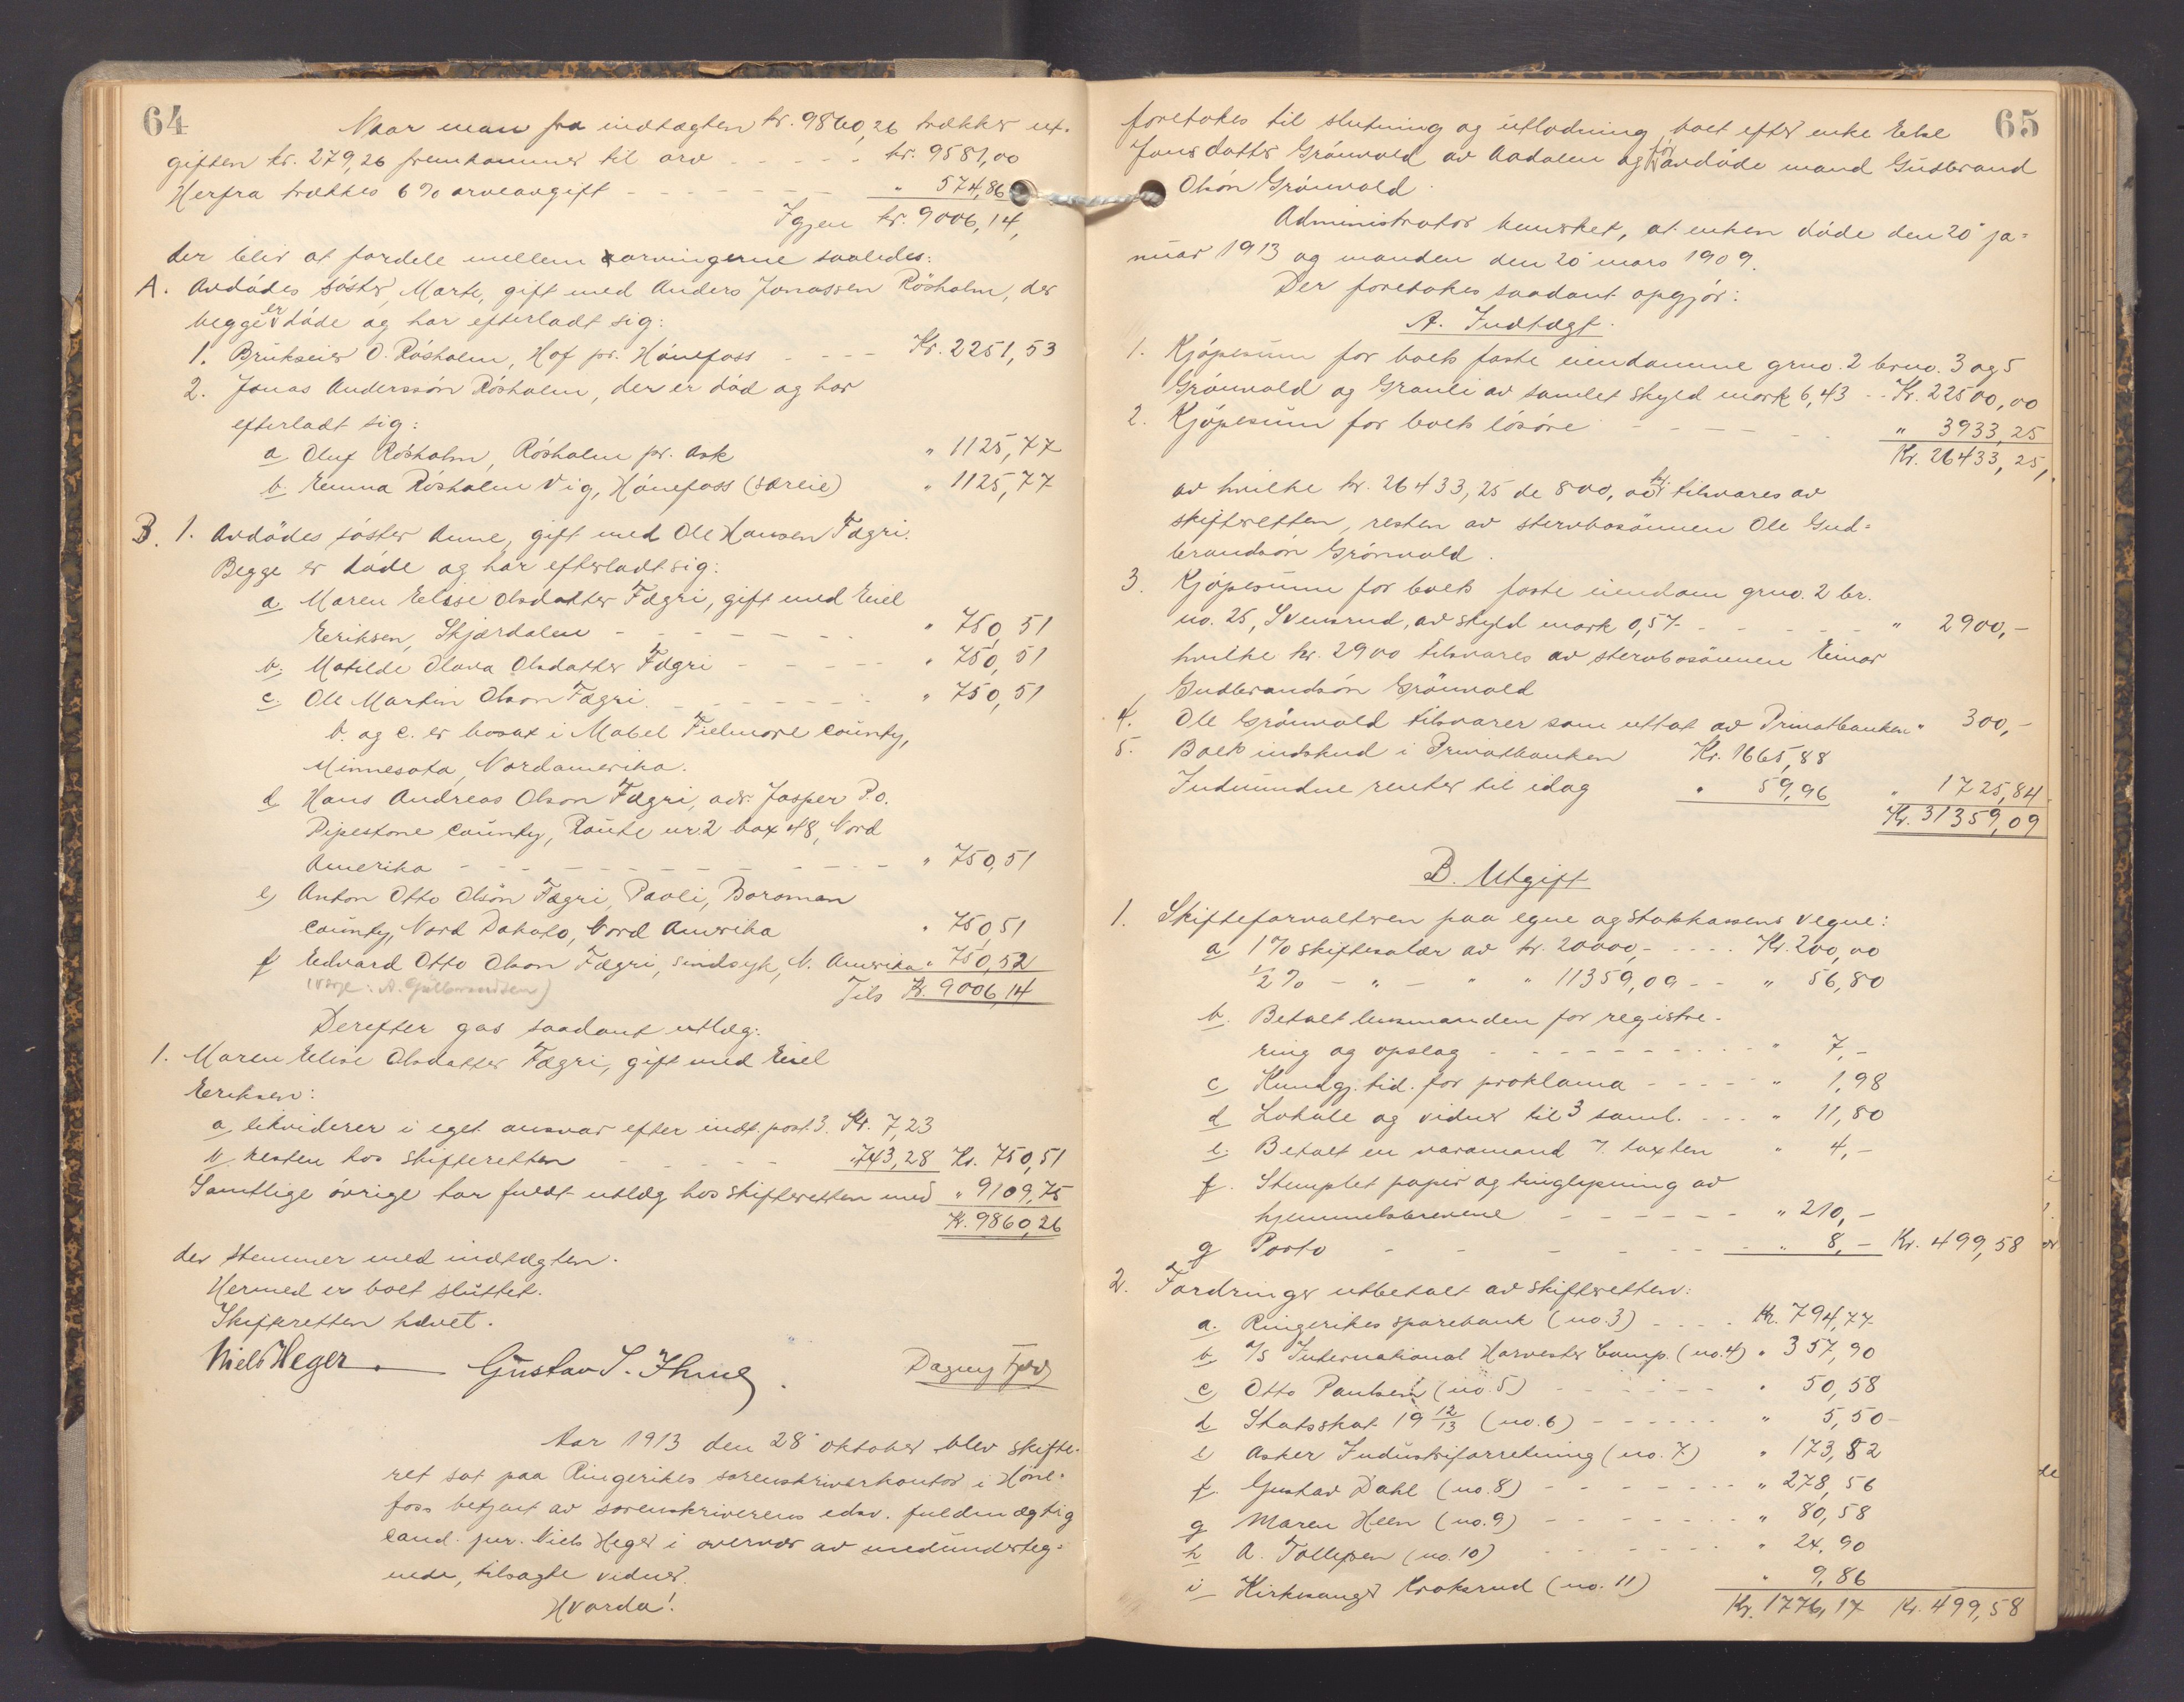 64
Naar man fra indtægten kr. 9860,26 trækker ut-
giften kr. 279,26 fremkommer til arv - - - - - kr. 9581,00
Herfra trækkes 6% arveavgift - - - - - - - " 574,86
Igjen kr. 9006,14,
der blir at fordele mellem arvingerne saaledes:
A. Avdødes søster, Marte, gift med Anders Jonassen Røsholm, der
begge er døde og har efterladt sig:
1. Brukseier O. Røsholm, Hof pr. Hønefoss - - - - Kr. 2251,53
2. Jonas Anderssøn Røsholm, der er død og har
efterladt sig:
a. Oluf Røsholm, Røsholm pr. Ask " 1125,77
b. Emma Røsholm Vig, Hønefoss (særeie) " 1125,77
B. 1. Avdødes søster Anne, gift med Ole Hansen Fægri.
Begge er døde og har efterladt sig:
a Maren Elise Olsdatter Fægri, gift med Emil
Eriksen, Skjærdalen - - - - - - - " 750,51
b. Matilde Olava Olsdatter Fægri - - - - - " 750,51
c. Ole Martin Olson Fægri. - - - - - - - " 750,51
b. og c. er bosat i Mabel Fielmore County,
Minnesota, Nordamerika.
d Hans Andreas Olson Fægri, adr. Jasper P.o.
Pipestone County, Route nr. 2 box 48, Nord
Amerika - - - - - - - - - - - " 750,51
e) Anton Otto Olsøn Fægri, Paoli, Boroman
County, Nord Dakota, Nord Amerika " 750,51
f Edvard Otto Olson Fægri, sindsyk, N. Amerika " 750,52
(verge: A. Gulbrandsen) Tils Kr. 9006,14
Derefter gas saadant utlæg:
1. Maren Elise Olsdatter Fægri, gift med Emil
Eriksen:
a, likviderer i eget ansvar efter indt. post 3. Kr. 7,23
b. resten hos skifteretten - - - - - " 743,28 Kr. 750,51
Samtlige øvrige har fuldt utlæg hos skifteretten med " 9109,75
Kr. 9860,26
der stemmer med indtægten.
Hermed er boet sluttet.
Skifteretten hævet.
Niels Heger. Gustav S. Ihme. Dagny
Aar 1913 den 28' oktober blev skifte-
ret sat paa Ringerikes sorenskriverkontor i Høne-
foss betjent av sorenskriverens edsv. fuldmægtig
cand. jur. Niels Heger i overvær av medunderteg-
nede, tilsagte vidner.
Hvorda!
65
foretokes til slutning og utlodning boet efter enke Else
Jonsdatter Grønvold av Aadalen og før avdøde mand Gudbrand
Olsøn Grønvold.
Administrator bemerket, at enken døde den 20' ja-
nuar 1913 og manden den 20' mars 1909.
Der foretokes saadant opgjør:
A. Indtægt.
1. Kjøpesum for boets faste eiendomme grno. 2 brno. 3 og 5
Grønvold og Granli av samlet skyld mark 6,43 - - Kr. 22500,00
2. Kjøpesum for boets løsøre - - - - - - " 3933,25
Kr. 26433,25,
av hvilke kr. 26433,25 de 800,00 kr. tilsvares av
skifteretten, resten av stervbosønnen Ole Gud-
brandsøn Grønvold.
3. Kjøpesum for boets faste eiendom grno. 2 br.
no. 25, Svensrud, av skyld mark 0,57 - - - - - " 2900,-
hvilke kr. 2900 tilsvares av stervbosønnen Einar
Gudbrandsøn Grønvold
4. Ole Grønvold tilsvarer som uttat av Privatbanken " 300,-
5. Boets indskud i Privatbanken Kr. 1665,88
Indvundne renter til idag " 59,96 " 1725,84
Kr. 31359,09
B. Utgift
1. Skifteforvalteren paa egne og statskassens vegne:
a 1% skiftesalær av kr. 20000,- - - - - Kr. 200,00
1/2% - " - " " 11359,09 - - " 56,80
b. Betalt lensmanden for registre-
ring og opslag - - - - - - - - - - " 7,-
c, Kundgj. tid. for proklama - - - - - " 1,98
d Lokale og vidner til 3 saml. - - - " 11,80
e. Betalt en varamand v. taxten " 4,-
f. Stemplet papir og tinglysning av
hjemmelsbrevene - - - - - - " 210,-
g Porto - - - - - - - " 8,- Kr. 499,58
2. Fordringer utbetalt av skifteretten:
a. Ringerikes sparebank (no. 3) - - - - Kr. 794,77
b. A/S International Harvester Comp. (no. 4) " 357,90
c, Otto Paulsen (no. 5) - - - - - - - " 50,58
d Statsskat 19 12/13 (no. 6) - - - - - - " 5,50
e Asker Industriforretning (no. 7) " 173,52
f. Gustav Dahl (no. 8) - - - - - - - " 278,56
g Maren Heen (no. 9) - - - - - - - " 80,58
h A. Tollefsen (no. 10) - - - - - - - " 24,90
i Kirkesanger Kroksrud (no. 11) " 9,86
Kr. 1776,17 Kr. 499,58